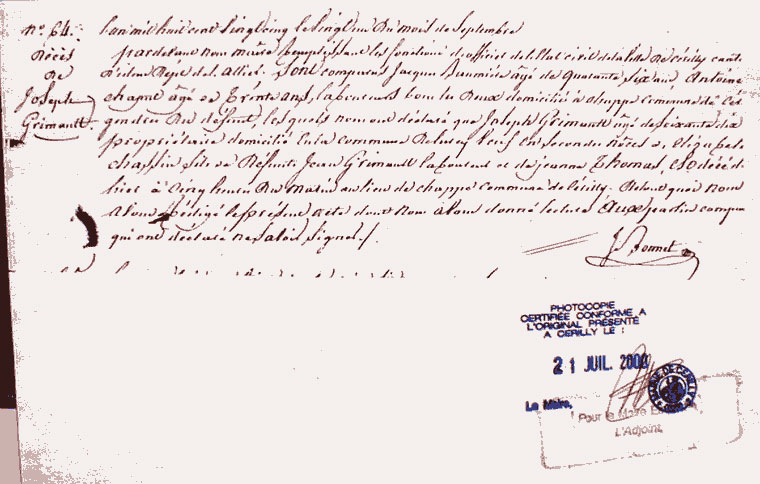 N° 64.
Décès
De
Joseph
Grimault.
L'an mil huit cent vingt cinq le vingt un du mois de Septembre
pardevant nous maire remplissant les fonctions d'officier de l'Etat civil de la ville de Cérilly cant.
Dépt de l'allier. Sont comparus Jacques age de quarante six ans Antoine
chapue âgé de trente ans, laboureurs tous les deux domiciliés à chappe commune de Cé
gendre du défunt, lesquels nous ont déclaré que Joseph Grimault âgé de soixante dix
propriétaire domicilié en la commune en secondes nôces
chaptin fils de Défunts Jean Grimault laboureur et de jeanne Thomas, est décédé
hier à cinq heures du matin au lieu de chappe Commune de Cérilly. De tout quoi nous
avons rédigé le présent acte dont nous avons donné lecture aux parties compar
qui ont déclaré ne savoir signer./.
J. Bonnet
PHOTOCOPIE
CERTIFIÉE CONFORME A
L'ORIGINAL PRÉSENTÉ
A CERILLY LE :
21 JUIL. 2000
Le Maire,
MAIRIE DE CERILLY
Pour le Maire
L'Adjoint,